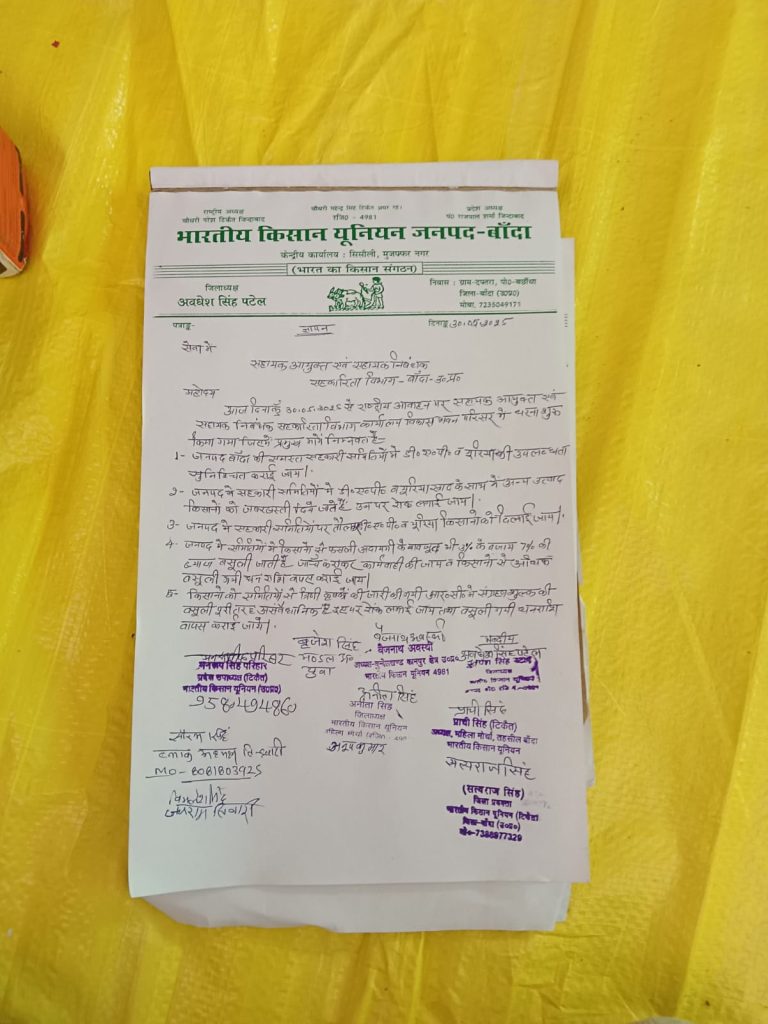 चौधरी महेन्द्र सिंह टिकैत अमर रहे।
राष्ट्रीय अध्यक्ष
चौधरी नरेश टिकैत जिन्दाबाद
रजि0 - 4981
प्रदेश अध्यक्ष
पं0 राजपाल शर्मा जिन्दाबाद
भारतीय किसान यूनियन जनपद-बाँदा
केन्द्रीय कार्यालय : सिसौली, मुजफ्फर नगर
(भारत का किसान संगठन)
जिलाध्यक्ष
अवधेश सिंह पटेल
निवास : ग्राम-दफ्तरा, पो0-बर्छीधा
जिला-बाँदा (उ0प्र0)
मोबा. 7235049171
पत्राङ्क-
ज्ञापन
दिनाङ्क 30.05.2025
सेवा में
सहायक आयुक्त एवं सहायक निबंधक
सहकारिता विभाग - बाँदा - उ०प्र०
महोदय
आज दिनाँक 30.05.2025 से राष्ट्रीय आवाहन पर सहायक आयुक्त एवं
सहायक निबंधक सहकारिता विभाग कार्यालय विकास भवन परिसर में धरना शुरू
किया गया जिसमें प्रमुख मांगे निम्नवत हैं-
1- जनपद बाँदा की समस्त सहकारी समितियों में डी०ए०पी० व यूरिया की उपलब्धता
सुनिश्चित कराई जाय।
2- जनपद में सहकारी समितियों में डी०ए०पी० व यूरिया खाद के साथ में अन्य उत्पाद
किसानों को जबरजस्ती दिये जाते हैं उन पर रोक लगाई जाय।
3- जनपद में सहकारी समितियों पर डी०ए०पी० व यूरिया किसानों को दिलाई जाय।
4- जनपद में समितियों में किसानों से फसली अदायगी के बावजूद भी 3% के बजाय 7% की
ब्याज वसूली जाती है जाँच कराकर कार्यवाही की जाय व किसानों से अधिक
वसूली गयी धन राशि वापस कराई जाय।
5- किसानों को समितियों से ऋणी कृषकों की जारी की गयी आर०सी० में संग्रह शुल्क की
वसूली पूरी तरह असंवैधानिक है इस पर रोक लगाई जाय तथा वसूली गयी धनराशि
वापस कराई जाये।
बृजेश सिंह
मण्डल
युवा
बैजनाथ अवस्थी
बैजनाथ अवस्थी
अध्यक्ष-बुन्देलखण्ड कानपुर क्षेत्र उ0प्र0
भारतीय किसान यूनियन 4981
भवदीय
अवधेश सिंह पटेल
सिंह परिहार
प्रदेश उपाध्यक्ष (टिकैत)
भारतीय किसान यूनियन (उ0प्र0)
9580494860
अनीता सिंह
अनीता सिंह
जिलाध्यक्ष
भारतीय किसान यूनियन
प्राची सिंह
प्राची सिंह (टिकैत)
अध्यक्ष, महिला मोर्चा, तहसील बाँदा
भारतीय किसान यूनियन
सौरभ सिंह
MO - 8081803925
सत्यराज सिंह
(सत्यराज सिंह)
जिला प्रवक्ता
भारतीय किसान यूनियन (टिकैत)
जिला-बाँदा (उ0प्र0)
मो०-7388977329